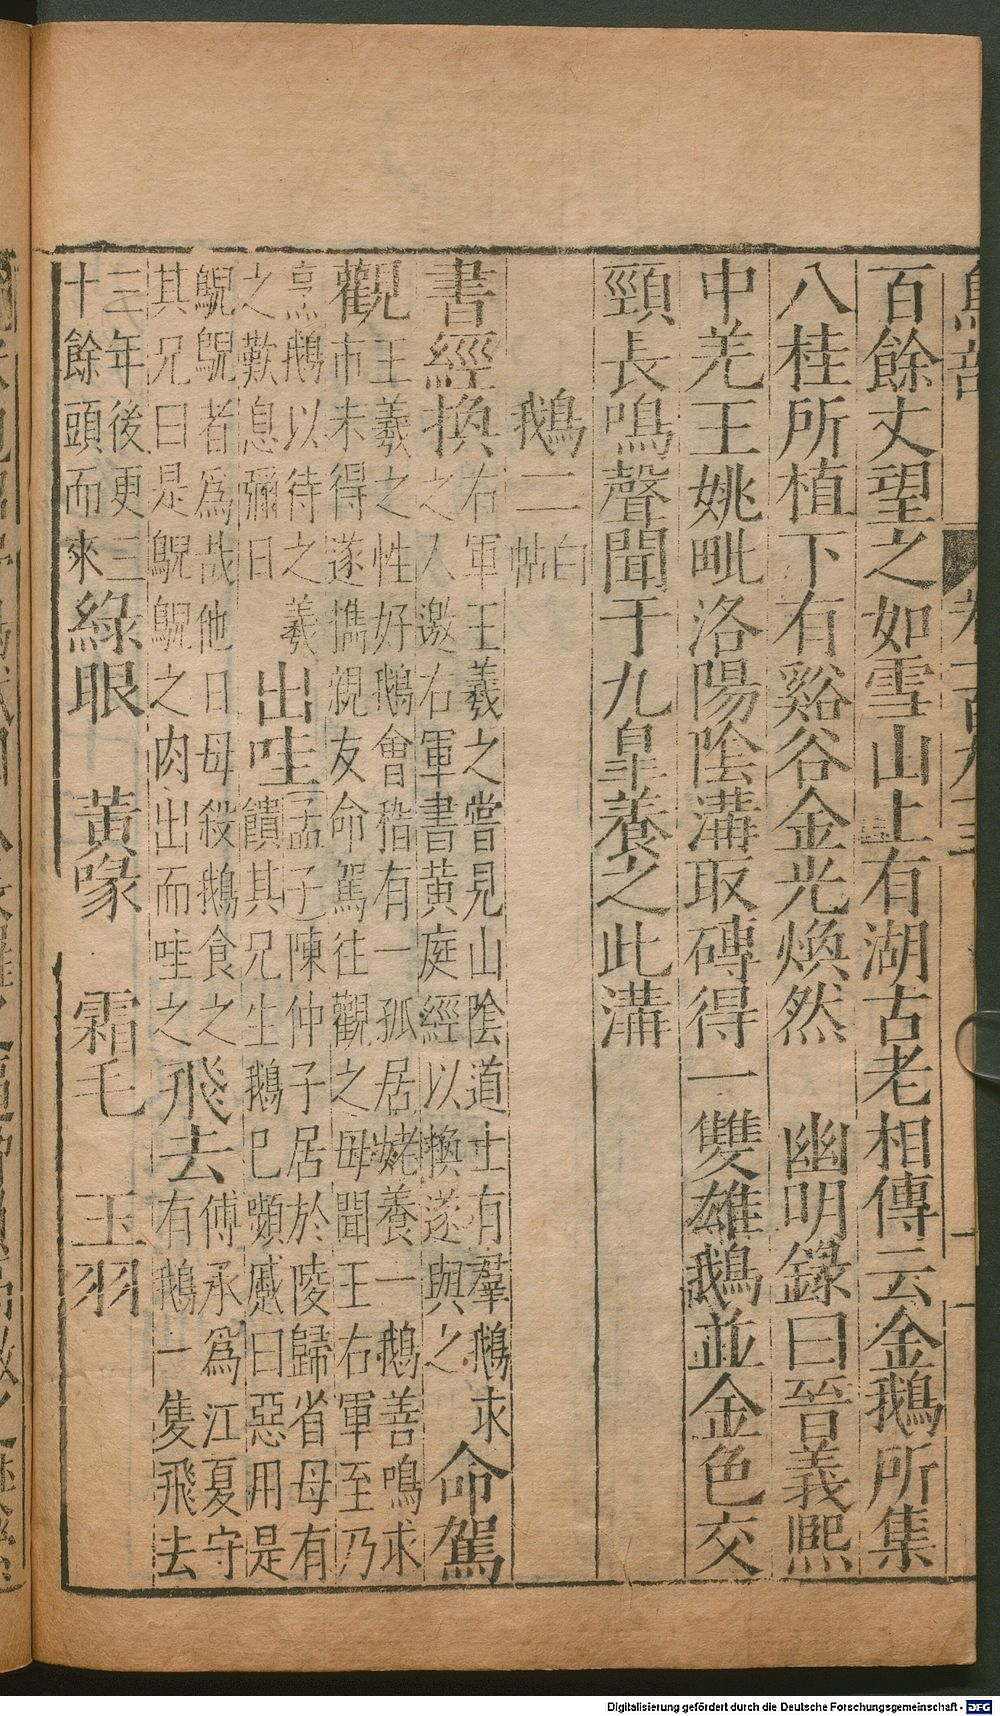 鳥部 卷一百九十三 十一
百餘丈望之如雪山上有湖古老相傳云金鵝所集
八桂所植下有谿谷金光煥然 幽明錄曰晉義熙
中羌王姚毗洛陽陰溝取磚得一雙雄鵝並金色交
頸長鳴聲聞于九皐養之此溝
鵝二白帖
書經換右軍王羲之嘗見山陰道士有羣鵝求
之人邀右軍書黄庭經以換遂與之命駕
觀王羲之性好鵝會稽有一孤居姥養一鵝善鳴求
市未得遂擕親友命駕往觀之母聞王右軍至乃
烹鵝以待之羲
之歎息彌日出哇孟子陳仲子居於陵歸省母有
饋其兄生鵝已嚬慼曰惡用是
鶃鶃者爲哉他日母殺鵝食之
其兄曰是鶃鶃之肉出而哇之飛去傅承爲江夏守
有鵝一隻飛去
三年後更三
十餘頭而來綠眼 黄喙 霜毛 玉羽
Digitalisierung gefördert durch die Deutsche Forschungsgemeinschaft - DFG